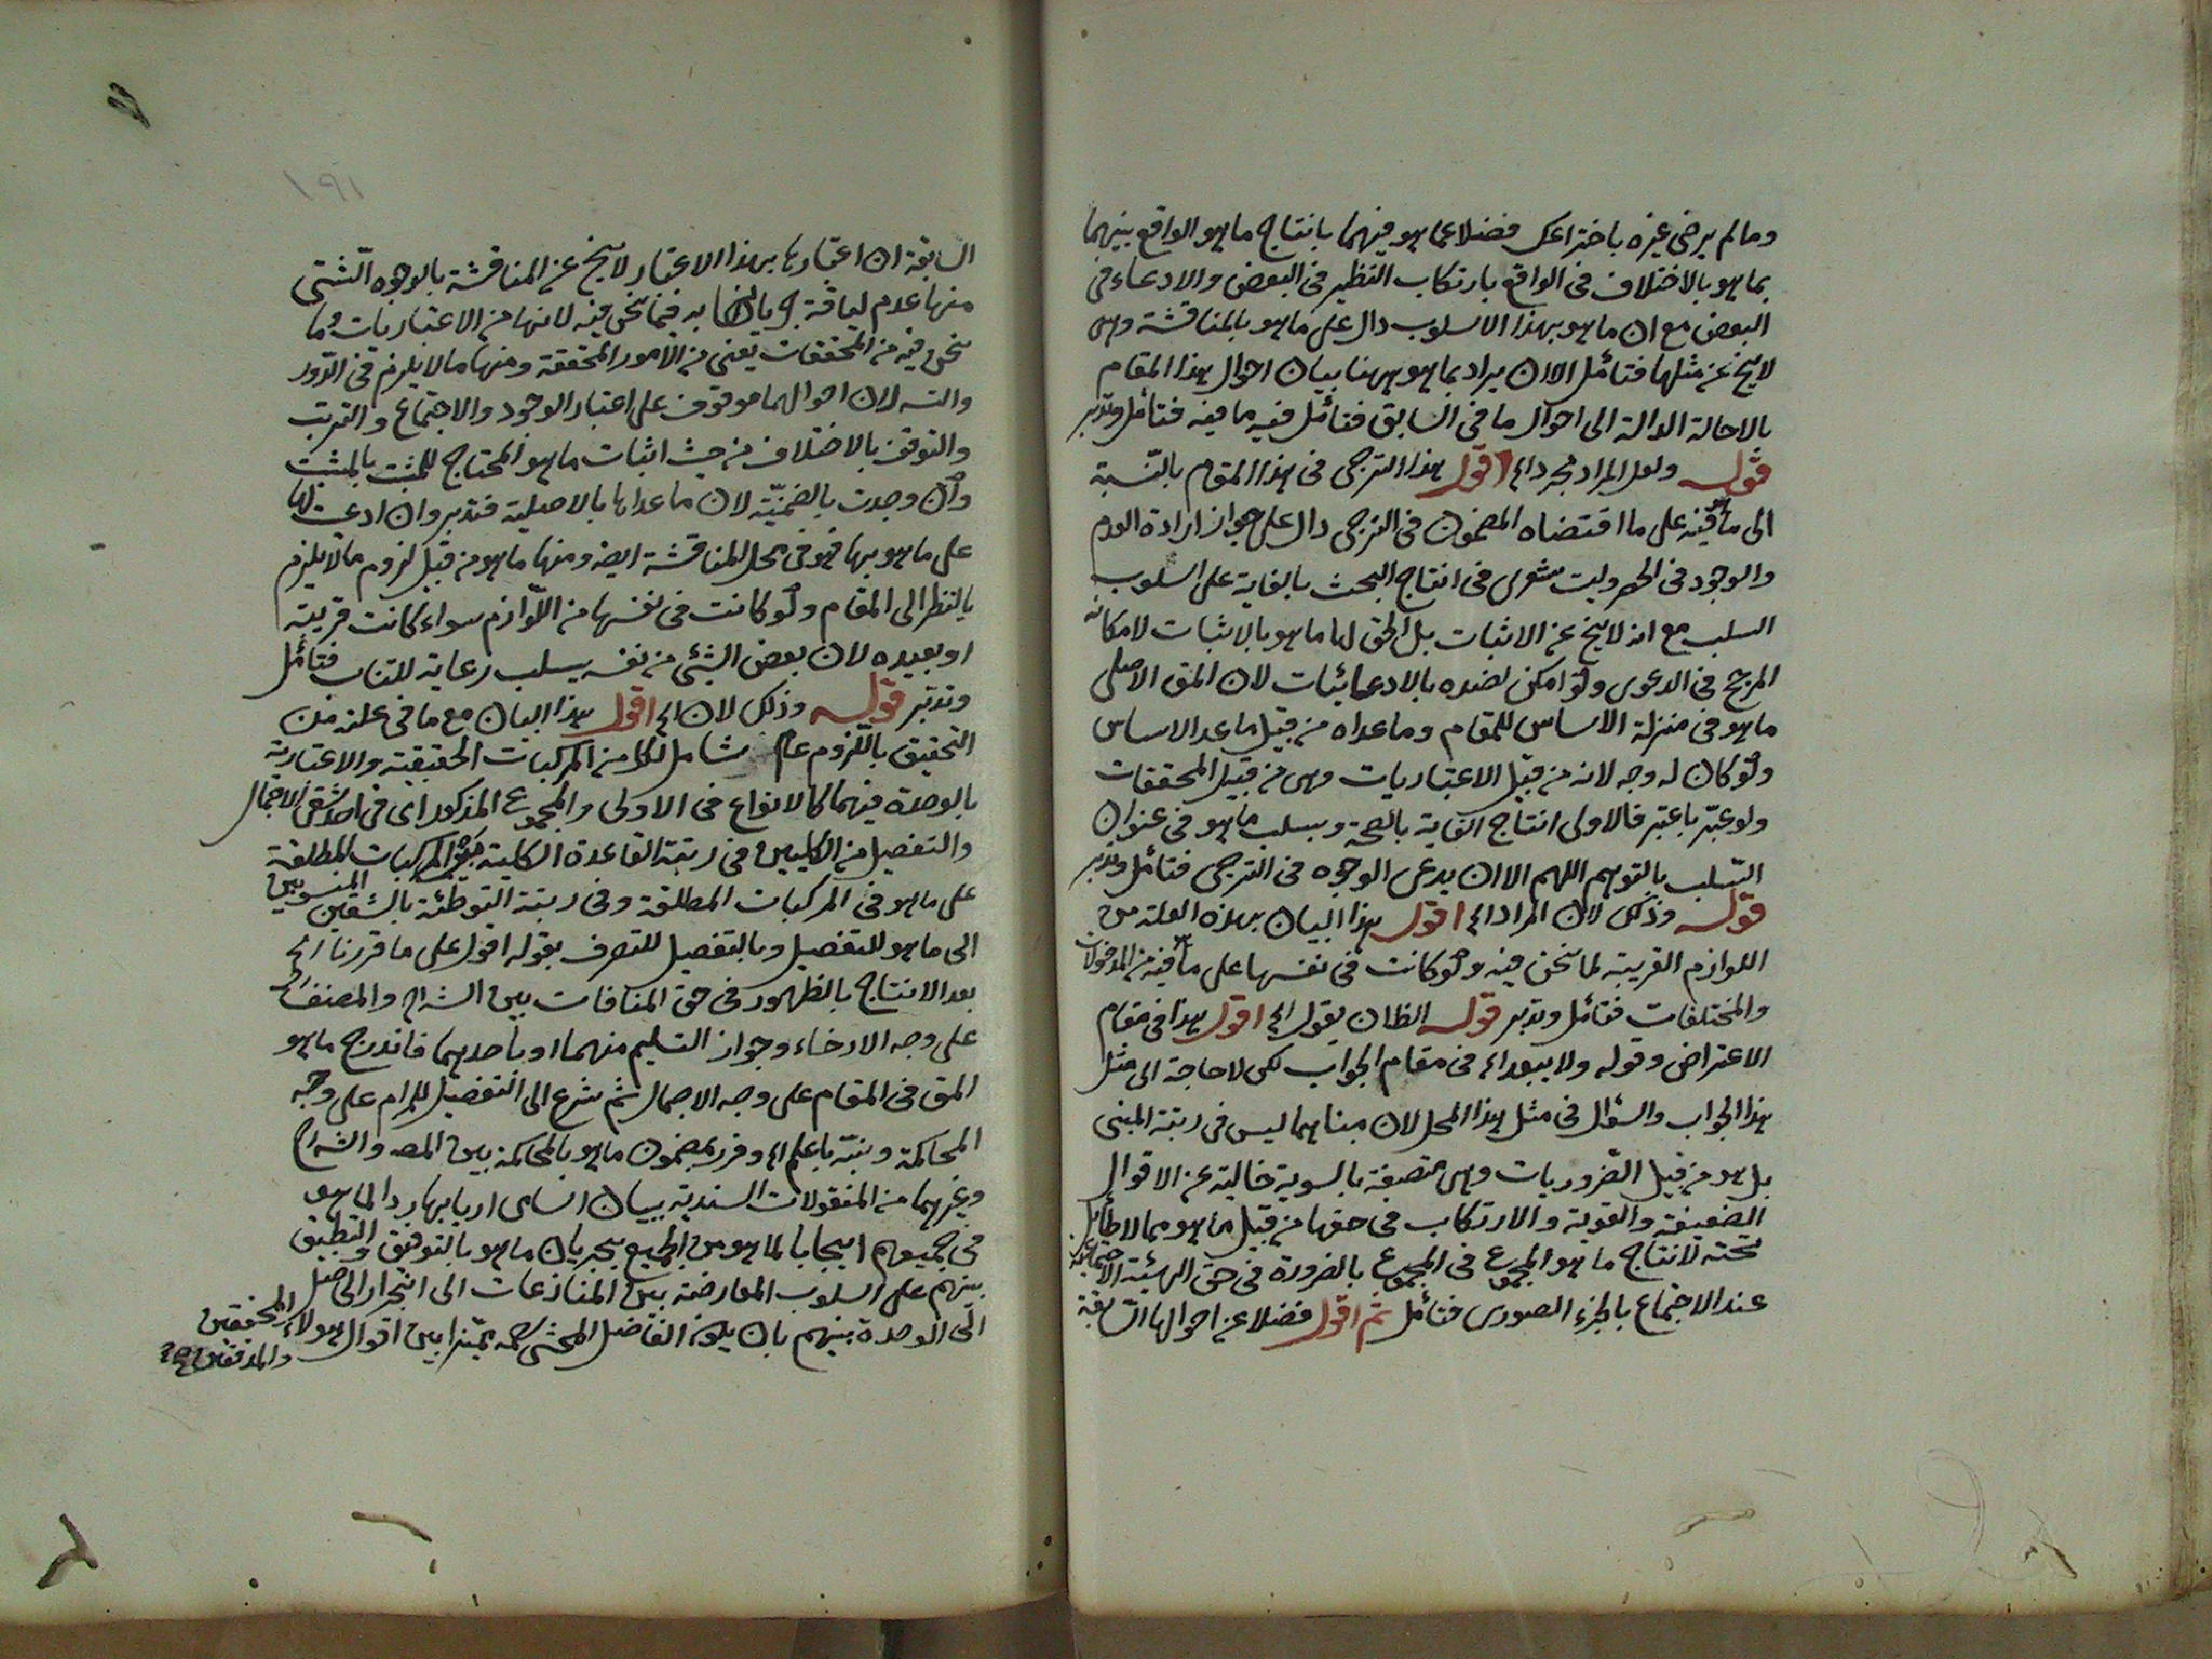 ومالم يرض غيره باختراعك فضلا عما هو فيهما بانتاج ما هو الواقع بينهما
بما هو بالاختلاف في الواقع بارتكاب النظير في البعض والادعاء في
البعض مع ان ما هو بهذا الاسلوب دال على ما هو بالمناقشة وهى
لا يخ عن مثلها فتأمل الا ان يراد بما هو ههنا بيان احوال هذا المقام
بالاحالة الدالة الى احوال ما في السابق فتأمل فيه ما فيه فتأمل وتدبر
قوله ولعل المراد مجرد الخ اقول هذا الترجى في هذا المقام بالنسبة
الى ما فيه على ما اقتضاه المضمون في الترجى دال على جواز ارادة العدم
والوجود في وليت شعرى في انتاج البحث بالغاية على اسلوب
السلب مع انه لا يخ عن الاثبات بل الحق لها ما هو بالاثبات لامكانه
المرجح في الدعوى ولو امكن لضده بالادعاء اثبات لان المق الاصلى
ما هو في منزلة الاساس للمقام وما عداه من قبيل ما عدا الاساس
ولو كان له وجه لانه من قبيل الاعتباريات وهى من قبيل المحققات
ولو عبر باعتبر فالاولى انتاج الغاية بالصحة وبسلب ما هو في عنوان
السلب بالتوهم اللهم الا ان يدعى الوجوه في الترجى فتأمل وتدبر
قوله وذلك لان المراد الخ اقول هذا البيان بهذه العلة من
اللوازم القريبة لما نحن فيه ولو كانت في نفسها على ما فيه من المدخولات
والمختلفات فتأمل وتدبر قوله الظان يقول الخ اقول هذا في مقام
الاعتراض وقوله ولا يبعد الخ في مقام الجواب لكن لا حاجة الى مثل
هذا الجواب والسؤال في مثل هذا المحل لان مبناهما ليس في رتبة المبنى
بل هو من قبيل الضروريات وهى متصفة بالسوية خالية عن الاقوال
الضعيفة والقوية والارتكاب في حقها من قبيل ما هو مما لا طائل
تحته لانتاج ما هو المجموع في المجموع بالضرورة في حق الهيئة الاجتماعية
عند الاجتماع بالجزء الصورى فتأمل ثم اقول فضلا عن احوالها السابقة
السابقة ان اعتبارها بهذا الاعتبار لا يخ عن المناقشة بالوجوه الشتى
منها عدم لياقة فيما نحن فيه لانها من الاعتباريات وما
نحن فيه من المحققات يعنى من الامور المحققة ومنها ما لا يلزم في الدور
والتسه لان احوالهما موقوف على اعتبار الوجود والاجتماع والترتب
والتوقف بالاختلاف من حيث اثبات ما هو المحتاج للمثبت بالمثبت
وان وجدت بالضمنية لان ما عداها بالاصلية فتدبر وان ادعت لها
على ما هو بها فهو في محل المناقشة ايضه ومنها ما هو من قبيل لزوم ما لا يلزم
بالنظر الى المقام ولو كانت في نفسها من اللوازم سواء كانت قريبة
او بعيده لان بعض الشئ من نفسه يسلب رعاية للتناسب فتأمل
وتدبر قوله وذلك لان الخ اقول هذا البيان مع ما في علته من
التحقيق باللزوم عام شامل لكل من المركبات الحقيقية والاعتبارية
بالوحدة فيهما كالانواع في الاولى والمجموع المذكور اى في احد شقى الاجمال
والتفصيل من الكليين في رتبة القاعدة الكلية المركبات المطلقة
على ما هو في المركبات المطلقة وفي رتبة التوطئة بالشقين المنسوبين
الى ما هو للتفصيل وبالتفصيل للتصرف بقوله اقول على ما قررنا الخ
بعد الانتاج بالظهور في حق المنافات بين الشراح والمصنف
على وجه الارخاء وجواز التسليم منهما او بأحدهما فاندرج ما هو
المق في المقام على وجه الاجمال ثم شرع الى التفصيل للمرام على وجه
المحاكمة ونبه باعلم الخ وقرر بمضمون ما هو بالمحاكمة بين المصه والشراح
وغيرهما من المنقولات السندية ببيان اسامى اربابها ردا لما هو
في جميعهم ايجابا لما هو من الجميع بجريان ما هو بالتوفيق والتطبيق
بينهم على اسلوب المعارضة بين المنازعات الى انجرار الحاصل
الى الوحدة بينهم بان يكون الفاضل المحشى رحمه مميزا بين اقوال هولاء المحققين
والمدققين